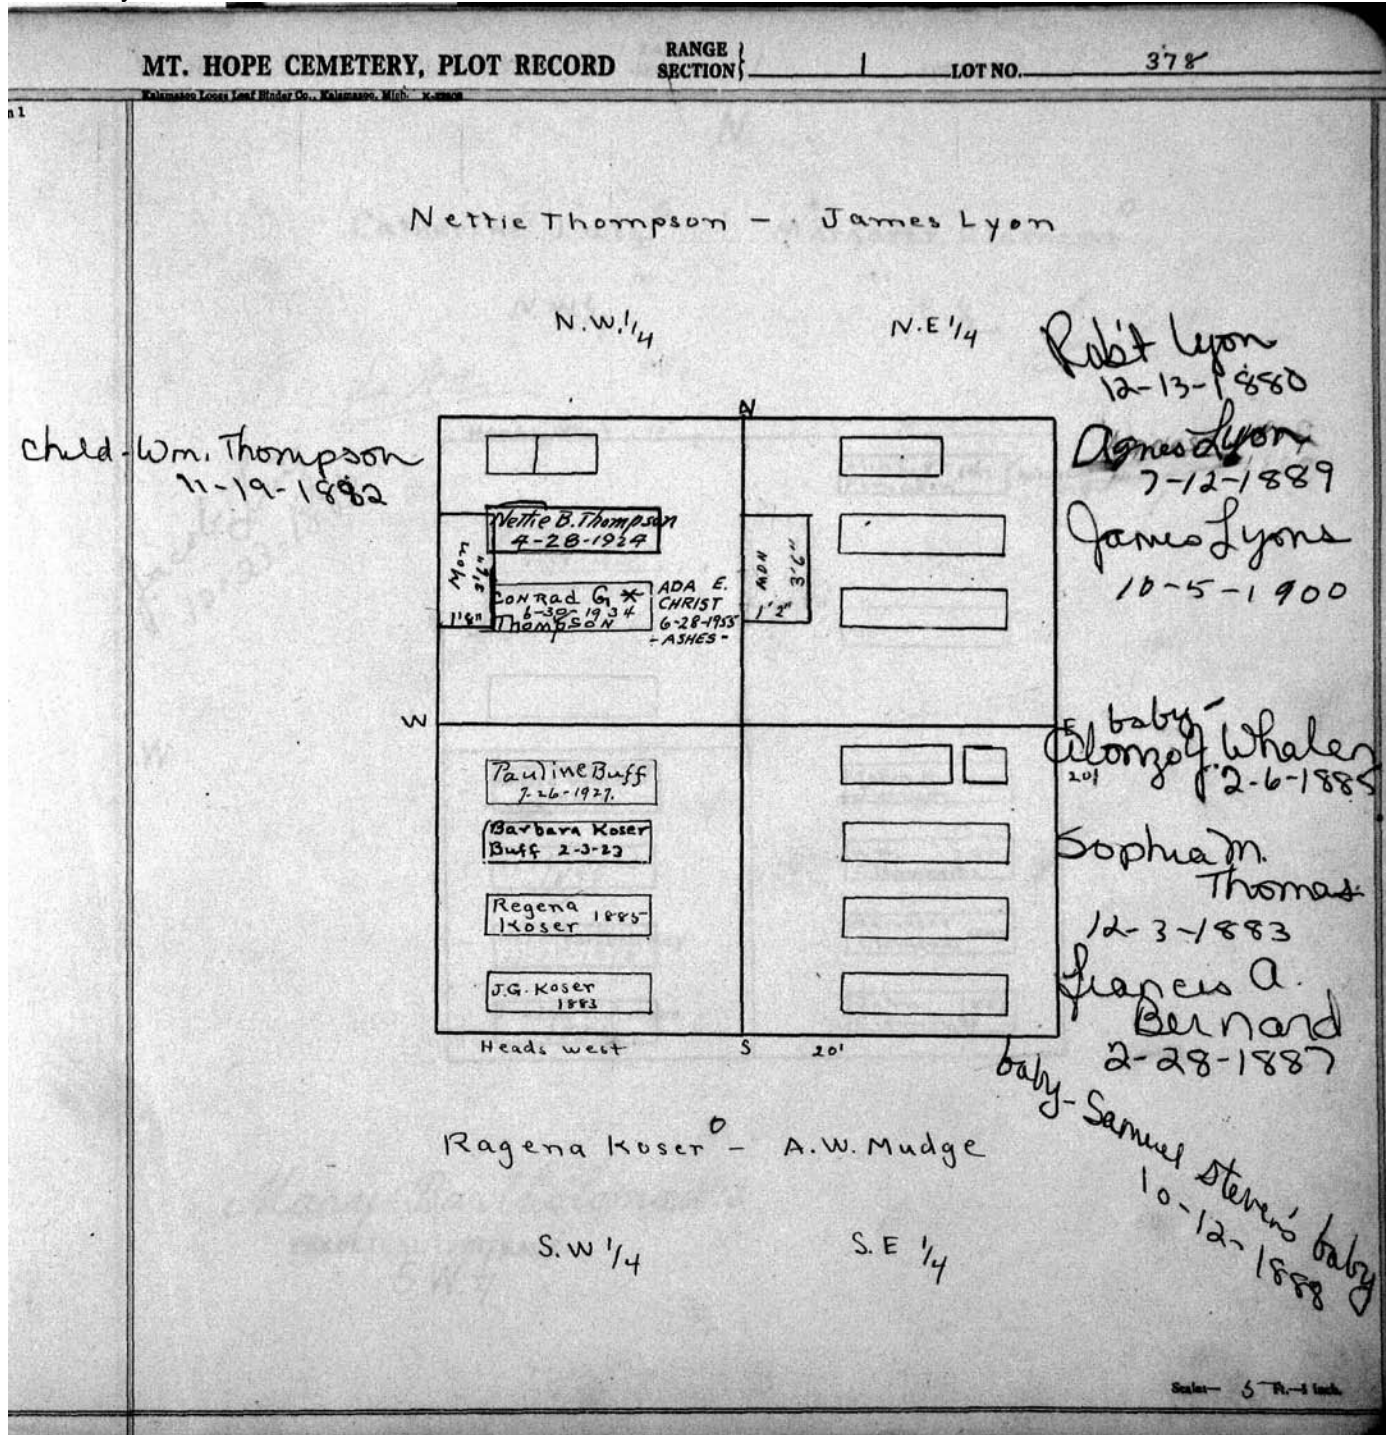 MT. HOPE CEMETERY, PLOT RECORD RANGE SECTION 1 LOT NO. 378
Kalamazoo Loose Leaf Binder Co., Kalamazoo, Mich.
n 1
Nettie Thompson - James Lyon
N.W. 1/4 N.E 1/4
Rob't Lyon
12-13-1880
N
child - Wm. Thompson
11-19-1882
Agnes Lyon
7-12-1889
James Lyons
10-5-1900
Nettie B. Thompson
4-28-1924
Mon 3'6"
1'8"
CONRad G *
6-30-1934
ThompSoN
ADA E.
CHRIST
6-28-1955
- ASHES -
MON 3'6"
1'2"
W
E
baby -
Alonzo J. Whalen
20'
2-6-1885
Pauline Buff
7-26-1927.
Barbara Koser
Buff 2-3-23
Regena
Koser 1885
J.G. Koser
1883
Sophia M.
Thomas
12-3-1883
Francis A.
Bernard
2-28-1887
Heads west S 20'
baby - Samuel Steven's baby
10-12-1888
Ragena Koser - A.W. Mudge
S.W 1/4 S.E 1/4
Scale— 5 Ft.—1 inch.